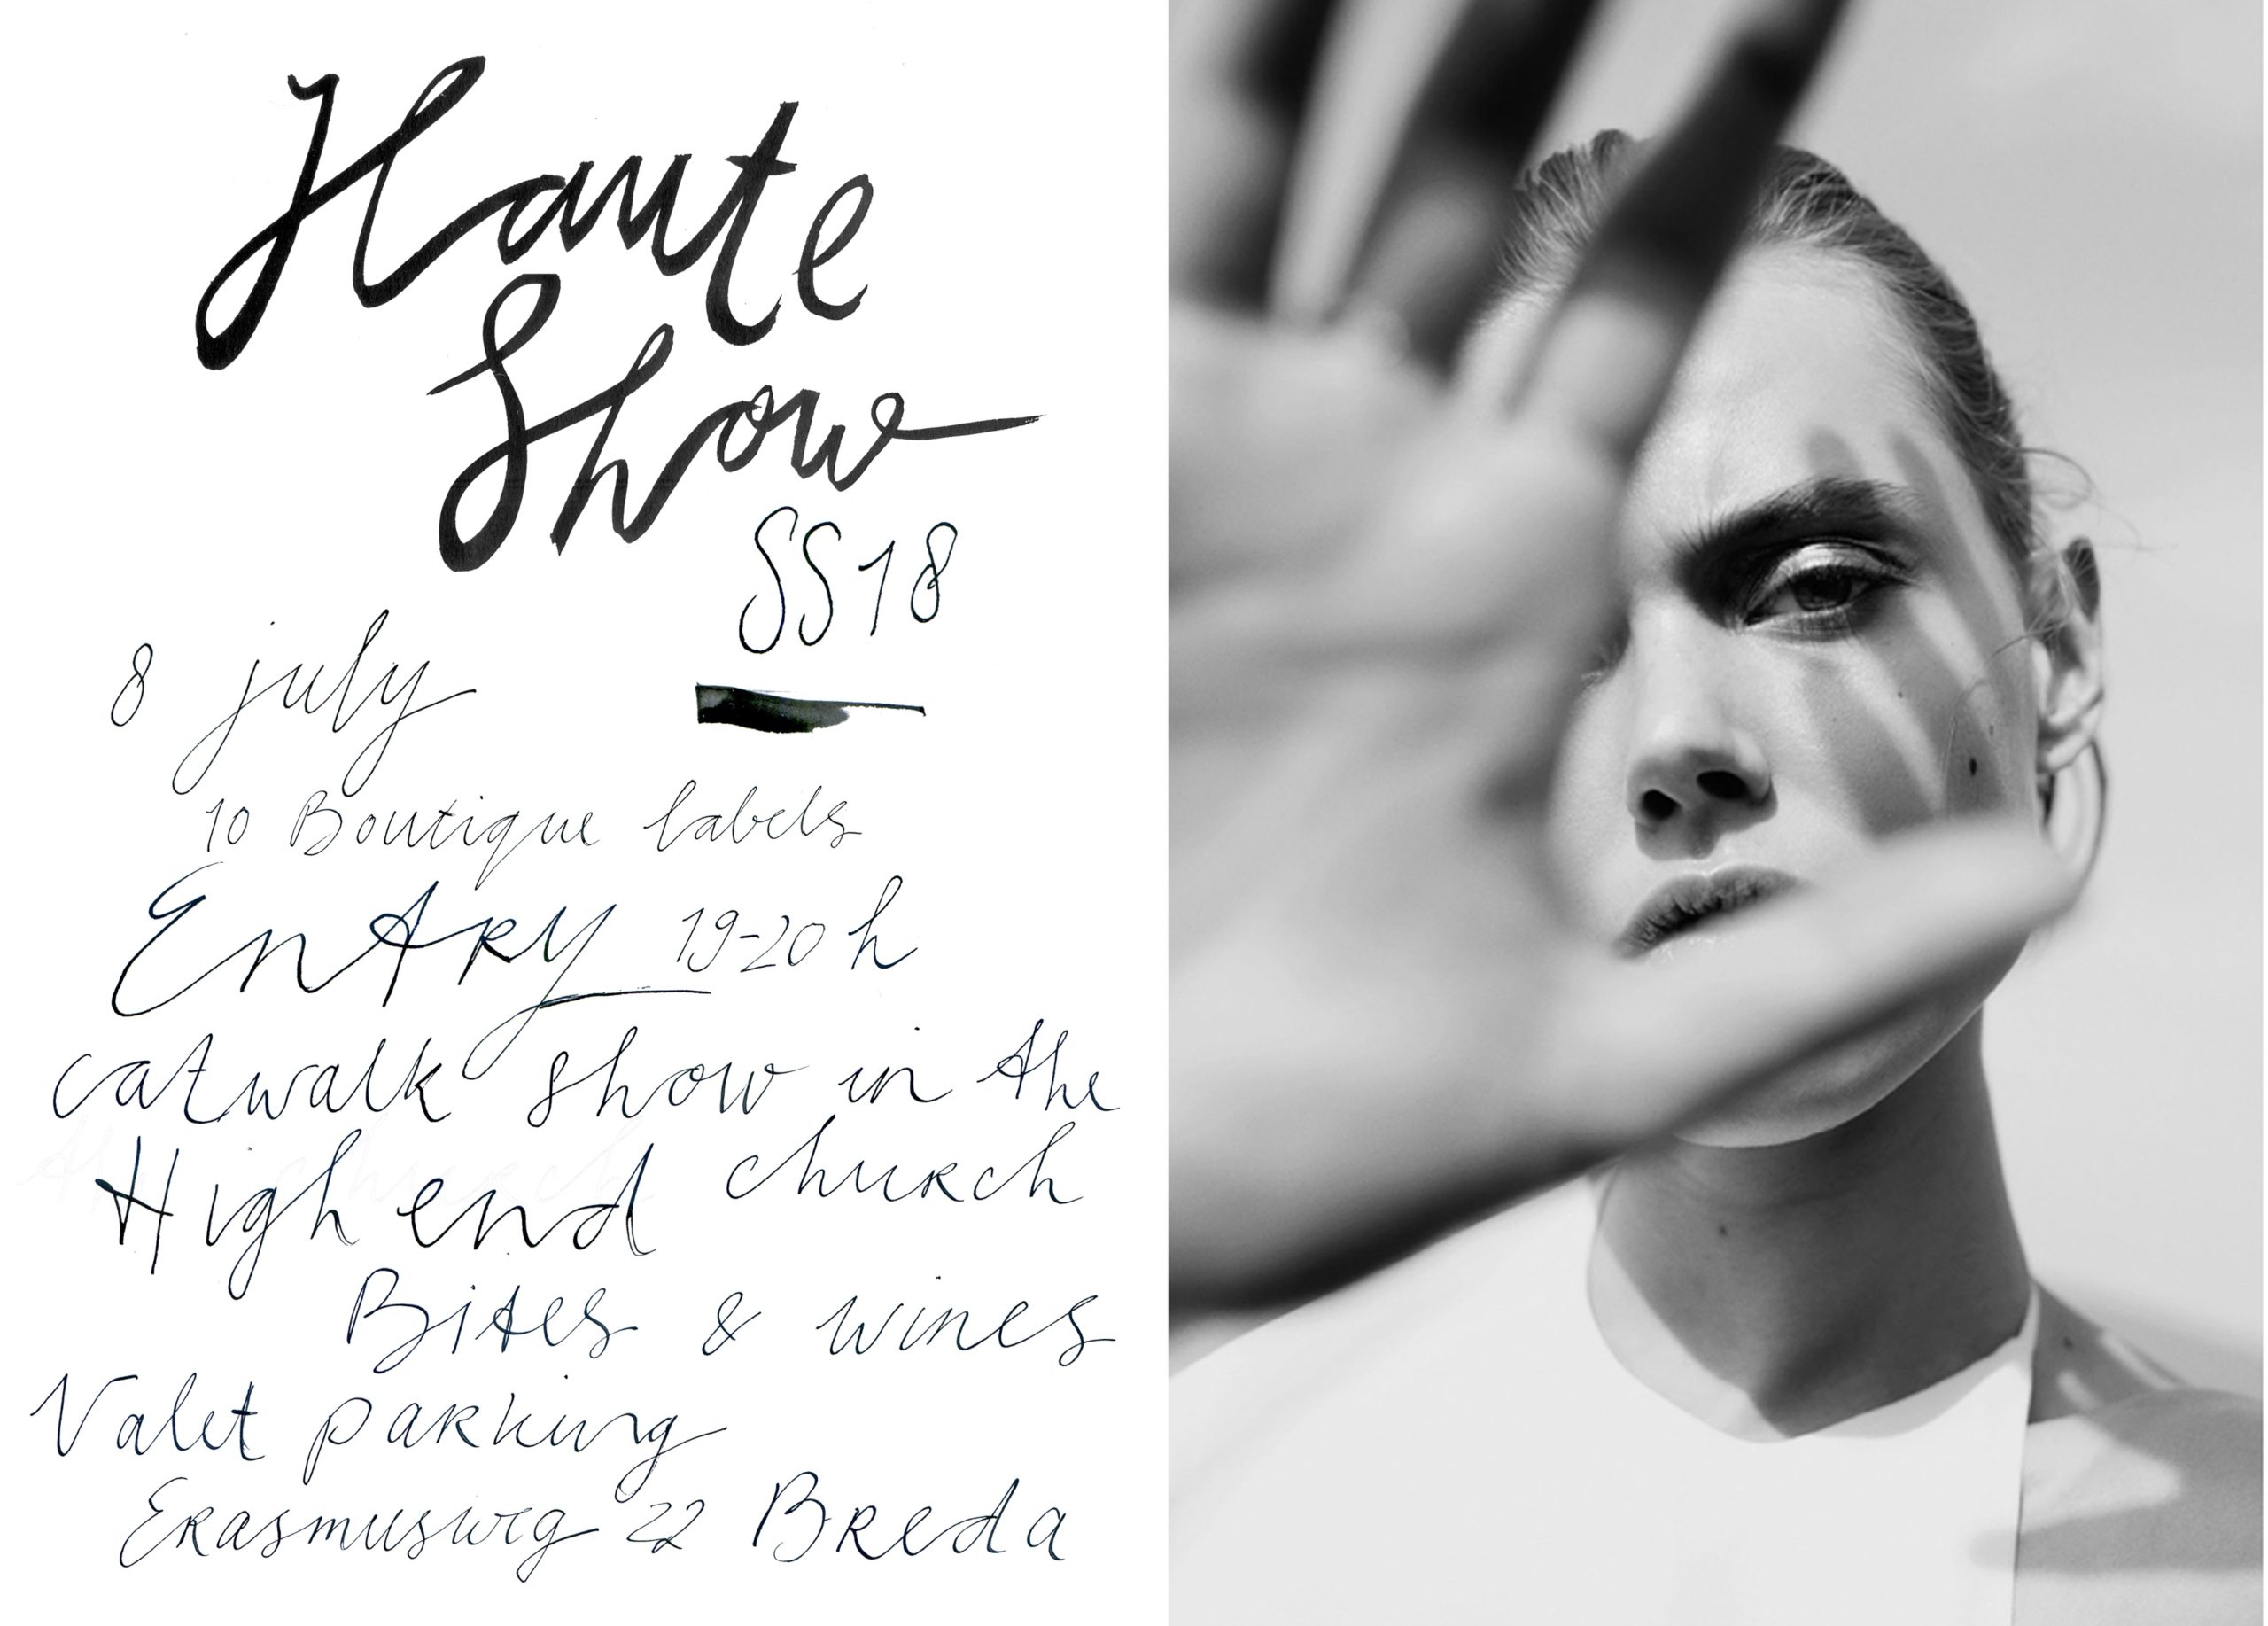 Haute
Show
SS18
8 july
10 Boutique labels
EntRy 19-20 h
catwalk show in the
High end church
Bites & wines
Valet parking
Erasmusweg 22 Breda